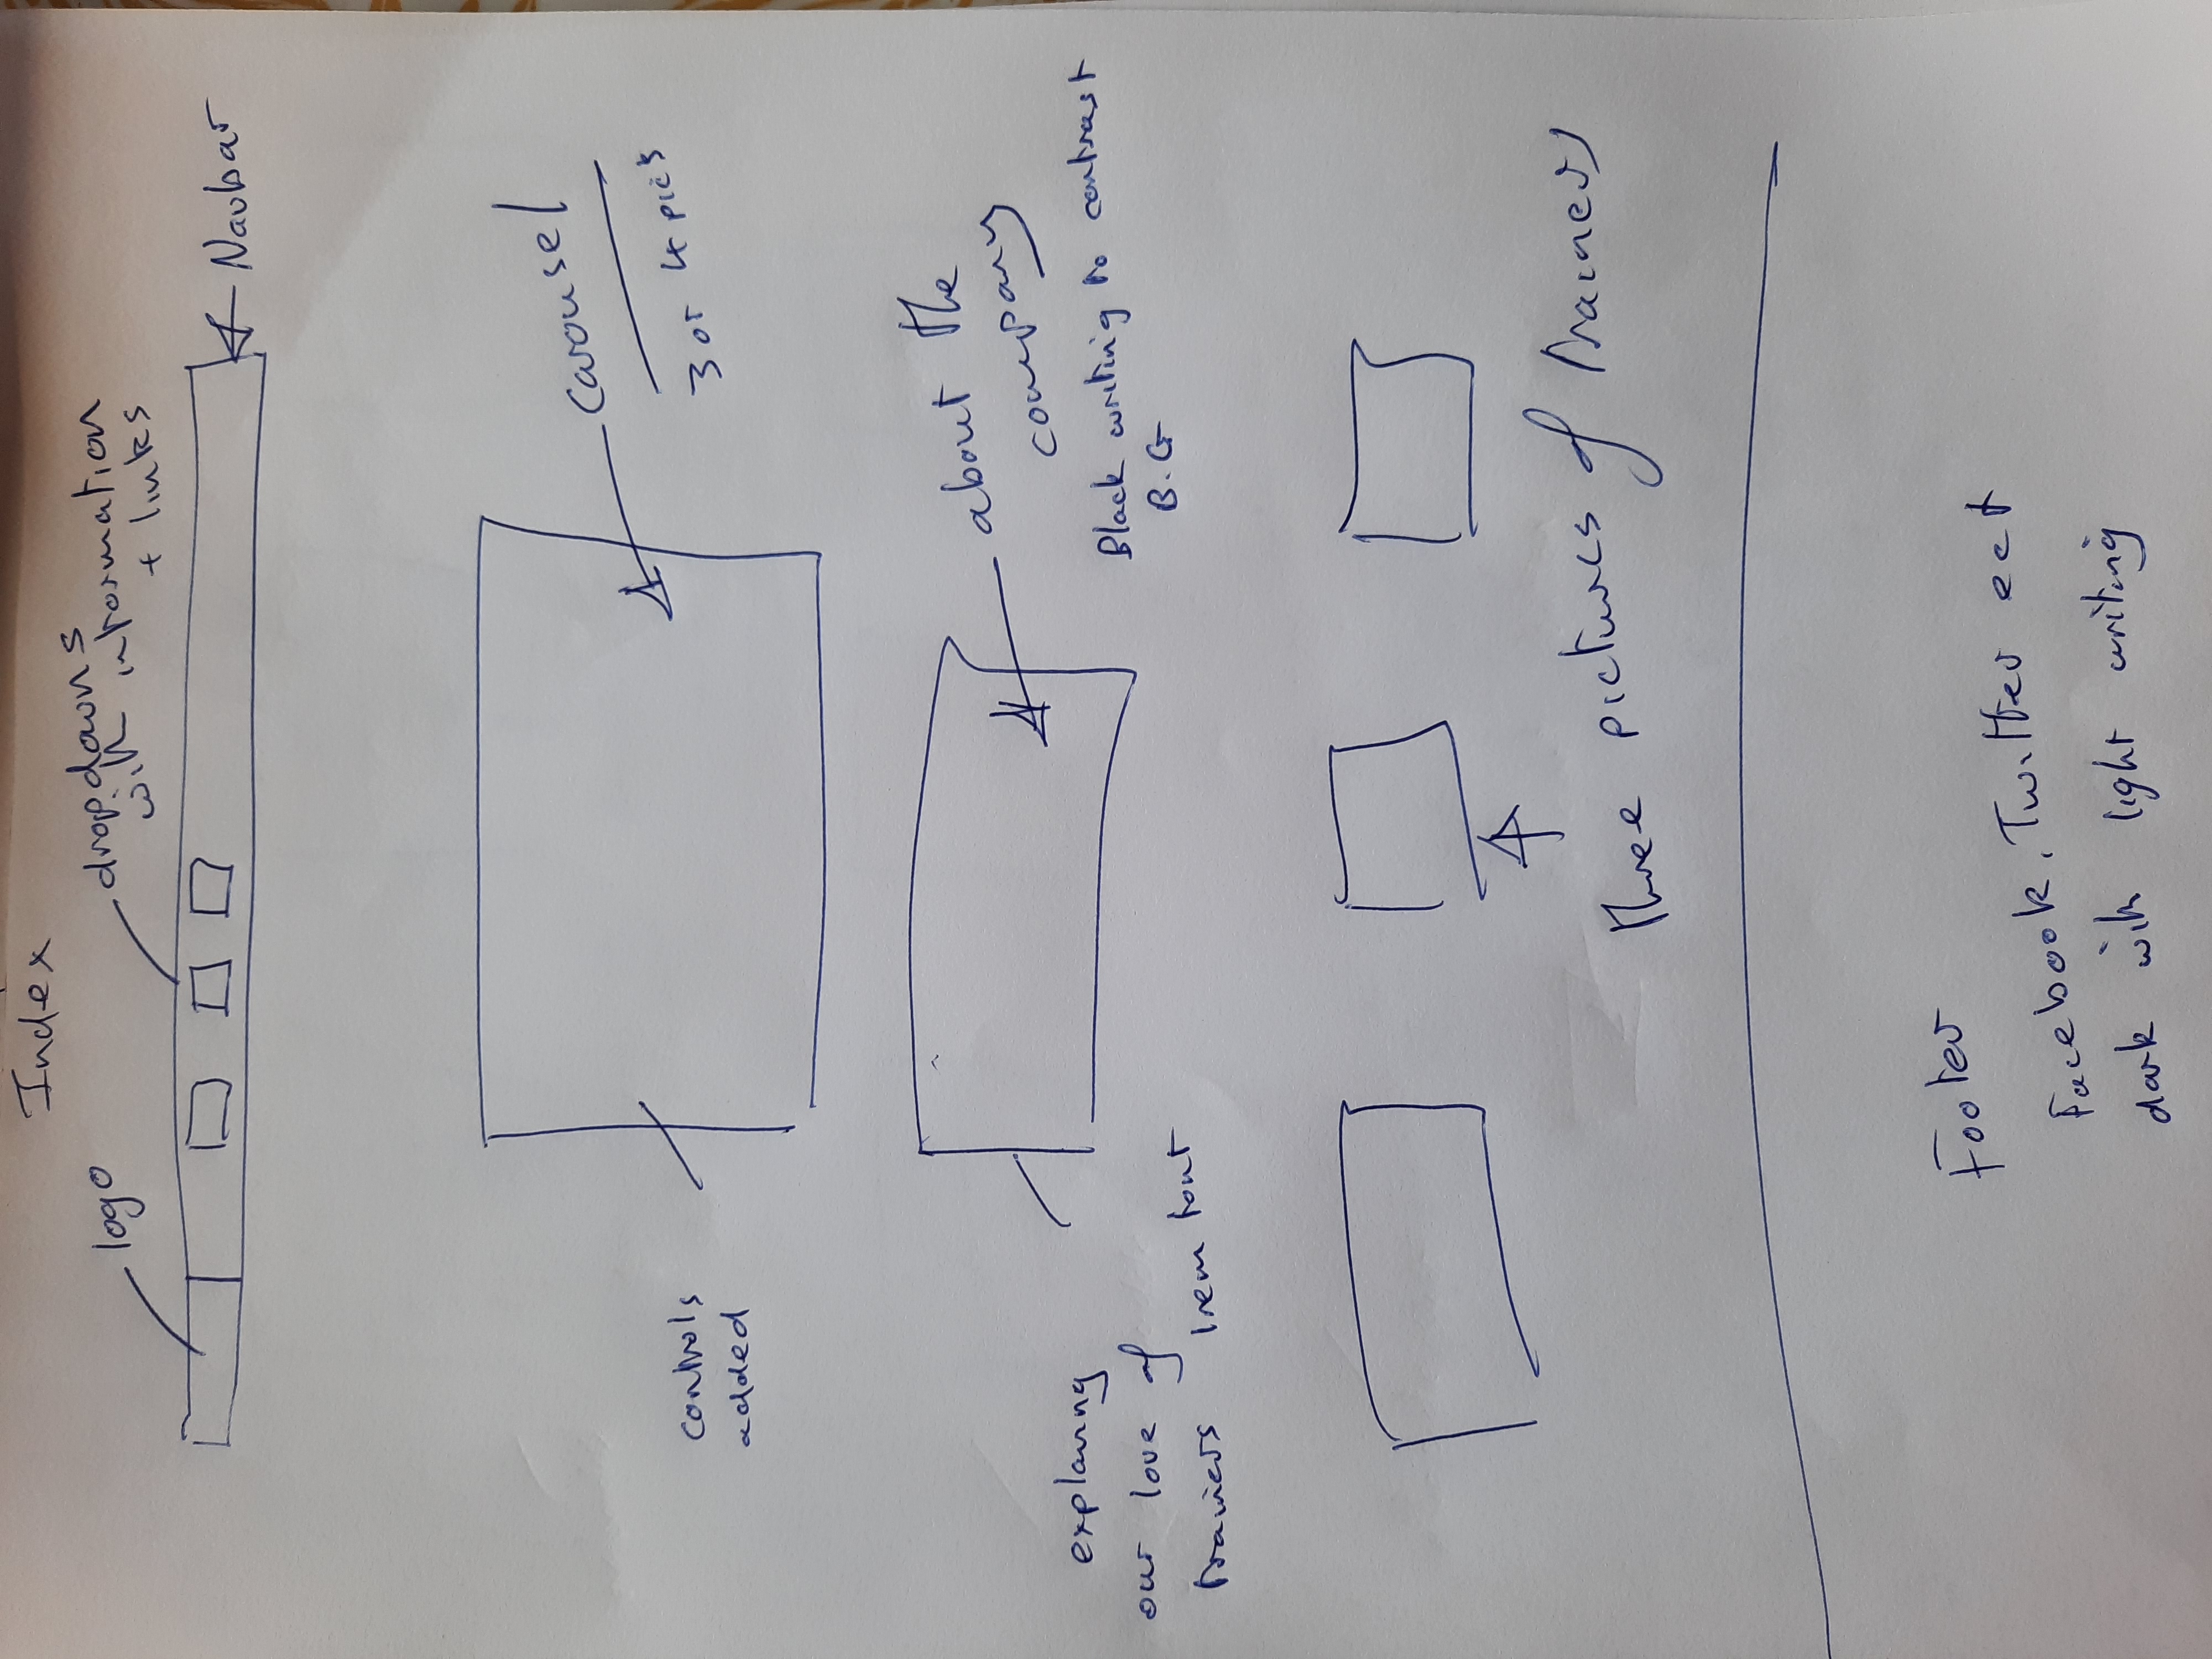 Index
logo
dropdowns
with information
+ links
Navbar
Carousel
3 or 4 pics
controls
added
about the
company
Black writing to contrast
B.G
explaning
our love of
trainers 1rem font
three pictures of trainers
Footer
Facebook, Twitter ect
dark with light writing